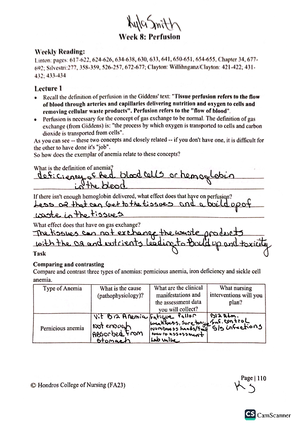 Kyla Smith
Week 8: Perfusion
Weekly Reading:
Linton: pages: 617-622, 624-626, 634-638, 630, 633, 641, 650-651, 654-655, Chapter 34, 677-
692; Silvestri: 277, 358-359, 526-257, 672-677; Clayton: Willihnganz/Clayton: 421-422, 431-
432, 433-434
Lecture 1
• Recall the definition of perfusion in the Giddens' text: "Tissue perfusion refers to the flow
of blood through arteries and capillaries delivering nutrition and oxygen to cells and
removing cellular waste products". Perfusion refers to the "flow of blood"
• Perfusion is necessary for the concept of gas exchange to be normal. The definition of gas
exchange (from Giddens) is: "the process by which oxygen is transported to cells and carbon
dioxide is transported from cells".
As you can see -- these two concepts and closely related -- if you don't have one, it is difficult for
the other to have done it's "job".
So how does the exemplar of anemia relate to these concepts?
What is the definition of anemia?
deficiency of red blood cells or hemoglobin
in the blood
If there isn't enough hemoglobin delivered, what effect does this have on perfusion?
less O2 that can get to the tissues and a build up of
waste in the tissues
What effect does this have on gas exchange?
The tissues can not exchange the waste products
with the O2 and nutrients leading to build up and toxicity
Task
Comparing and contrasting
Compare and contrast three types of anemia: pernicious anemia, iron deficiency and sickle cell
anemia.
Type of Anemia
What is the cause (pathophysiology)?
What are the clinical manifestations and the assessment data you will collect?
What nursing interventions will you plan?
Pernicious anemia
Vit B12 Anemia
Not enough
Absorbed from
stomach
Fatigue Pallor
weakness,
lab value
B12
S/S infections
Page | 110
© Hondros College of Nursing (FA23)
KS
CS CamScanner